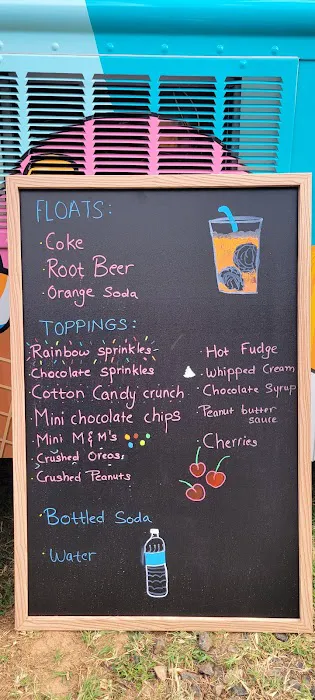 FLOATS:
· Coke
· Root Beer
· Orange Soda
TOPPINGS:
· Rainbow sprinkles
· Chocolate sprinkles
· Cotton Candy crunch
· Mini chocolate chips
· Mini M&M's
· Crushed Oreos
· Crushed Peanuts
· Hot Fudge
· Whipped Cream
· Chocolate Syrup
· Peanut butter
sauce
· Cherries
· Bottled Soda
· Water